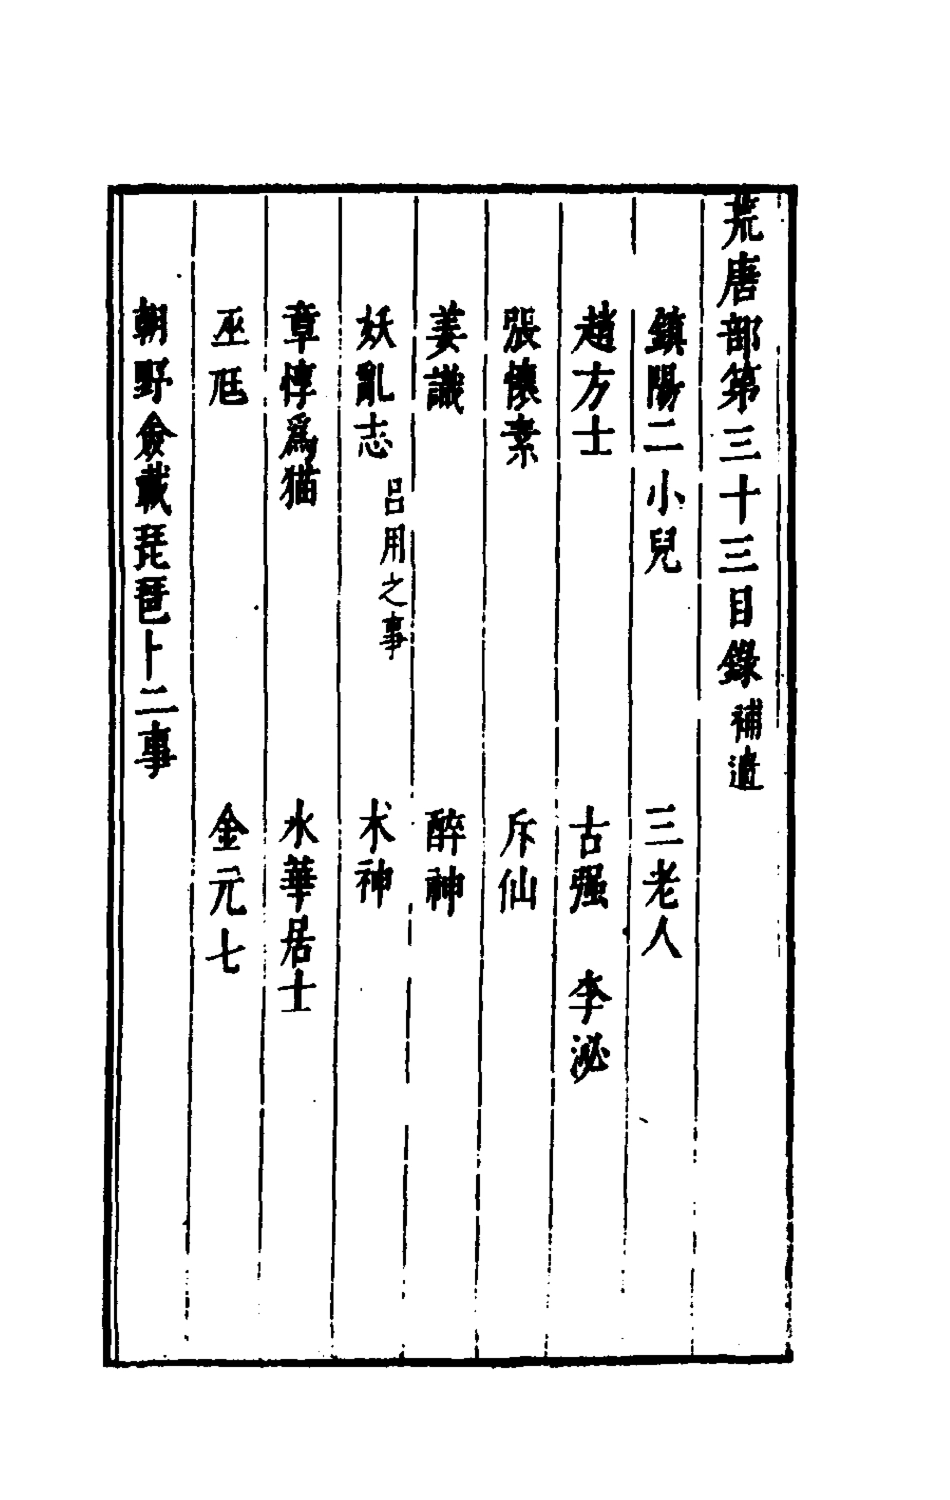 荒唐部第三十三目錄 補遺
鎮陽二小兒 三老人
趙方士 古强 李泌
張懷素 斥仙
姜識 醉神
妖亂志 呂用之事 木神
章惇爲猫 水華居士
巫尫 金元七
朝野僉載琵琶卜二事